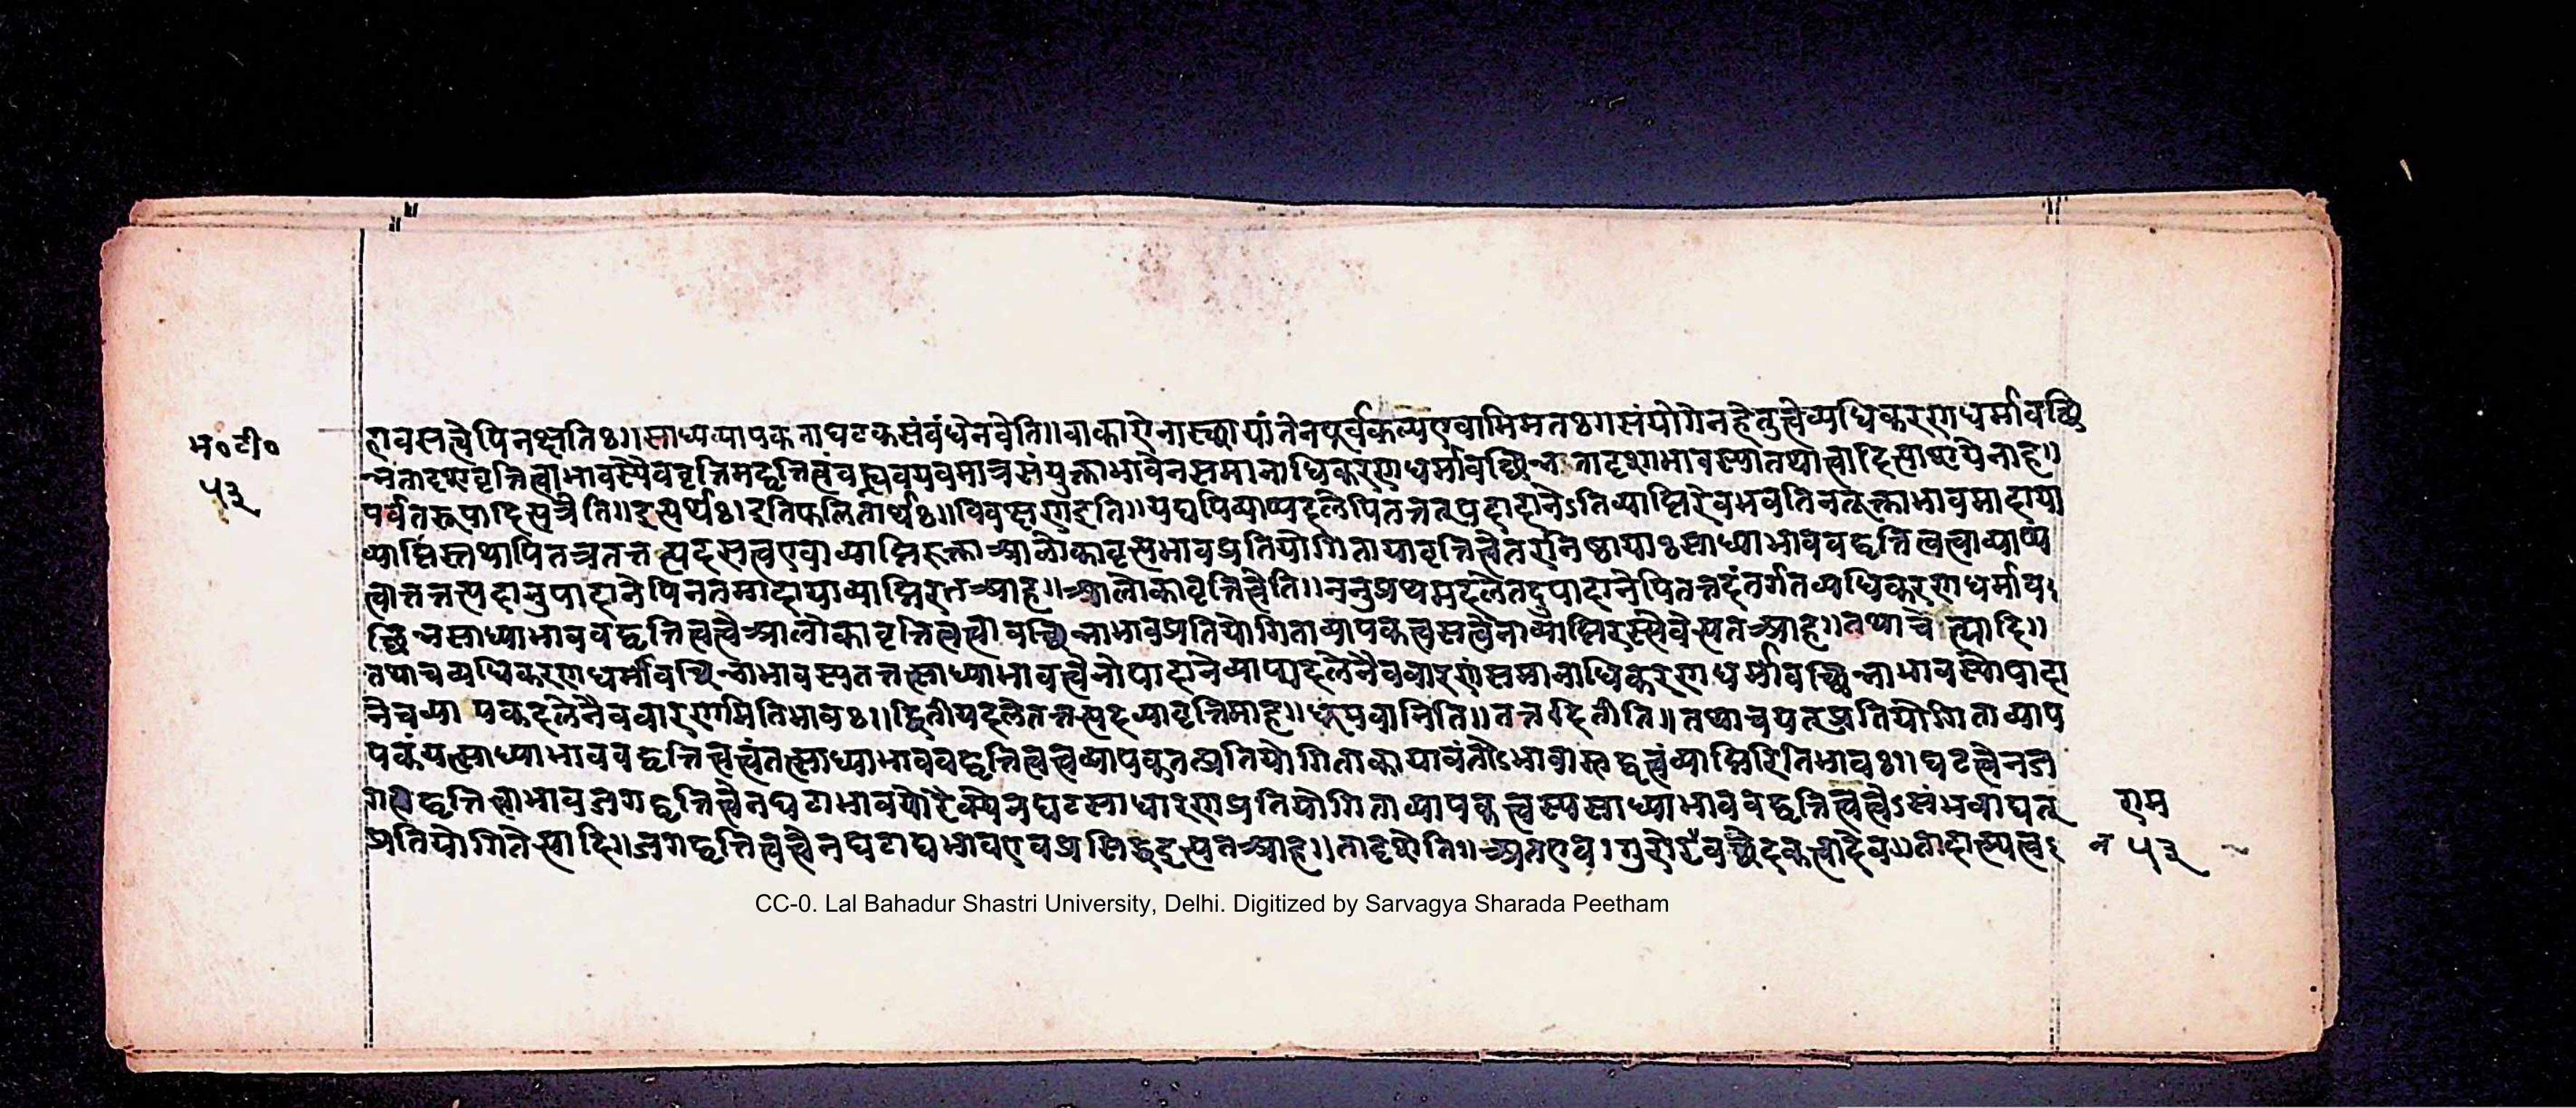 म॰टी॰
५३
णवसत्वेपिनक्षतिः॥साध्यव्यापकताघटकसंबंधेनवेति॥वाकारोनास्थायांतेनपूर्वकल्पएवाभिमतःगसंयोगेनहेतुत्वेव्यधिकरणधर्मावच्छि
न्नतादृशवृत्तित्वाभावस्यैववृत्तिमद्वृत्तित्वंवस्त्ववयवमात्रसंयुक्ताभावेनसमानाधिकरणधर्मावच्छिन्नतादृशाभावस्यातथात्वादित्याशयेनाह॥
पर्वतरूपादिसत्रैति॥इत्यर्थः।इतिफलितार्थः॥विवक्षणाइति॥यद्यपिव्याप्यदलेपितत्तत्पदादानेऽतिव्याप्तिरेवभवतिनतूक्ताभावमादाया
व्याप्तिस्तथापितत्रतत्तत्पदसत्वएवाव्याप्तिरुक्ताआलोकावृत्यभावप्रतियोगितायावृत्तित्वेतरानिष्ठायाःसाध्याभाववद्वृत्तित्वत्वाव्याप्य
त्वात्तत्तत्पदानुपादानेपिनतमादायाव्याप्तिरतआह॥आलोकावृत्तित्वेति॥ननुप्रथमदलेतदुपादानेपितत्तदंतर्गतव्यधिकरणधर्माव
च्छिन्नसाध्याभाववद्वृत्तित्वत्वेआलोकावृत्तित्वत्वावच्छिन्नाभावप्रतियोगिताव्यापकत्वसत्वेनाव्याप्तिरस्त्येवेत्यतआह॥तथाचेत्यादि॥
तथाचव्यधिकरणधर्मावच्छिन्नाभावस्यतत्तत्साध्याभावत्वेनोपादानेव्याप्यदलेनैववारणंसमानाधिकरणधर्मावच्छिन्नाभावस्योपादा
नेचव्यापकदलेनैववारणमितिभावः॥द्वितीयदलेतत्तत्पदव्यावृत्तिमाह॥धूमवानिति॥तत्तदितीति॥तथाचयत्प्रतियोगिताव्याप
पकंयत्साध्याभाववद्वृत्तित्वत्वंतत्साध्याभाववद्वृत्तित्वत्वव्यापकतत्प्रतियोगिताकायावंतोऽभावास्तद्वत्वंव्याप्तिरितिभावः॥घटत्वेनज
गद्वृत्तित्वाभावजगद्वृत्तित्वेनघटाभावयोरैक्येनघटसाधारणप्रतियोगिताव्यापकत्वस्यसाध्याभाववद्वृत्तित्वत्वेऽसंभवाद्यत्
प्रतियोगितेत्यादि॥जगद्वृत्तित्वत्वेनघटाद्यभावएवप्रसिद्धइत्यतआह॥तादृशेति॥अतएव।गुरोरेवच्छेदकत्वादेव॥तादात्म्यत्वइ
राम
५३
CC-0. Lal Bahadur Shastri University, Delhi. Digitized by Sarvagya Sharada Peetham